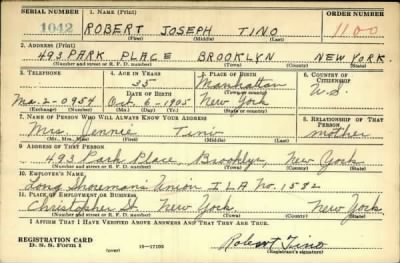 SERIAL NUMBER 1. NAME (Print) ORDER NUMBER
1042 ROBERT JOSEPH TINO 1100
(First) (Middle) (Last)
2. ADDRESS (Print)
493 PARK PLACE BROOKLYN NEW YORK
(Number and street or R. F. D. number) (Town) (County) (State)
3. TELEPHONE 4. AGE IN YEARS 5. PLACE OF BIRTH 6. COUNTRY OF CITIZENSHIP
35 Manhattan
DATE OF BIRTH (Town or county)
Ma. 2-0954 Oct. 6-1905 New York U.S.
(Exchange) (Number) (Mo.) (Day) (Yr.) (State or country)
7. NAME OF PERSON WHO WILL ALWAYS KNOW YOUR ADDRESS 8. RELATIONSHIP OF THAT PERSON
Mrs. Jennie Tino mother
(Mr., Mrs., Miss) (First) (Middle) (Last)
9. ADDRESS OF THAT PERSON
493 Park Place, Brooklyn, New York
(Number and street or R. F. D. number) (Town) (County) (State)
10. EMPLOYER'S NAME
Long Shoremans Union I L A No. 1582
11. PLACE OF EMPLOYMENT OR BUSINESS
Christopher St. New York New York
(Number and street or R. F. D. number) (Town) (County) (State)
I AFFIRM THAT I HAVE VERIFIED ABOVE ANSWERS AND THAT THEY ARE TRUE.
REGISTRATION CARD
D. S. S. FORM 1 (over) 16—17105 Robert Tino
(Registrant's signature)